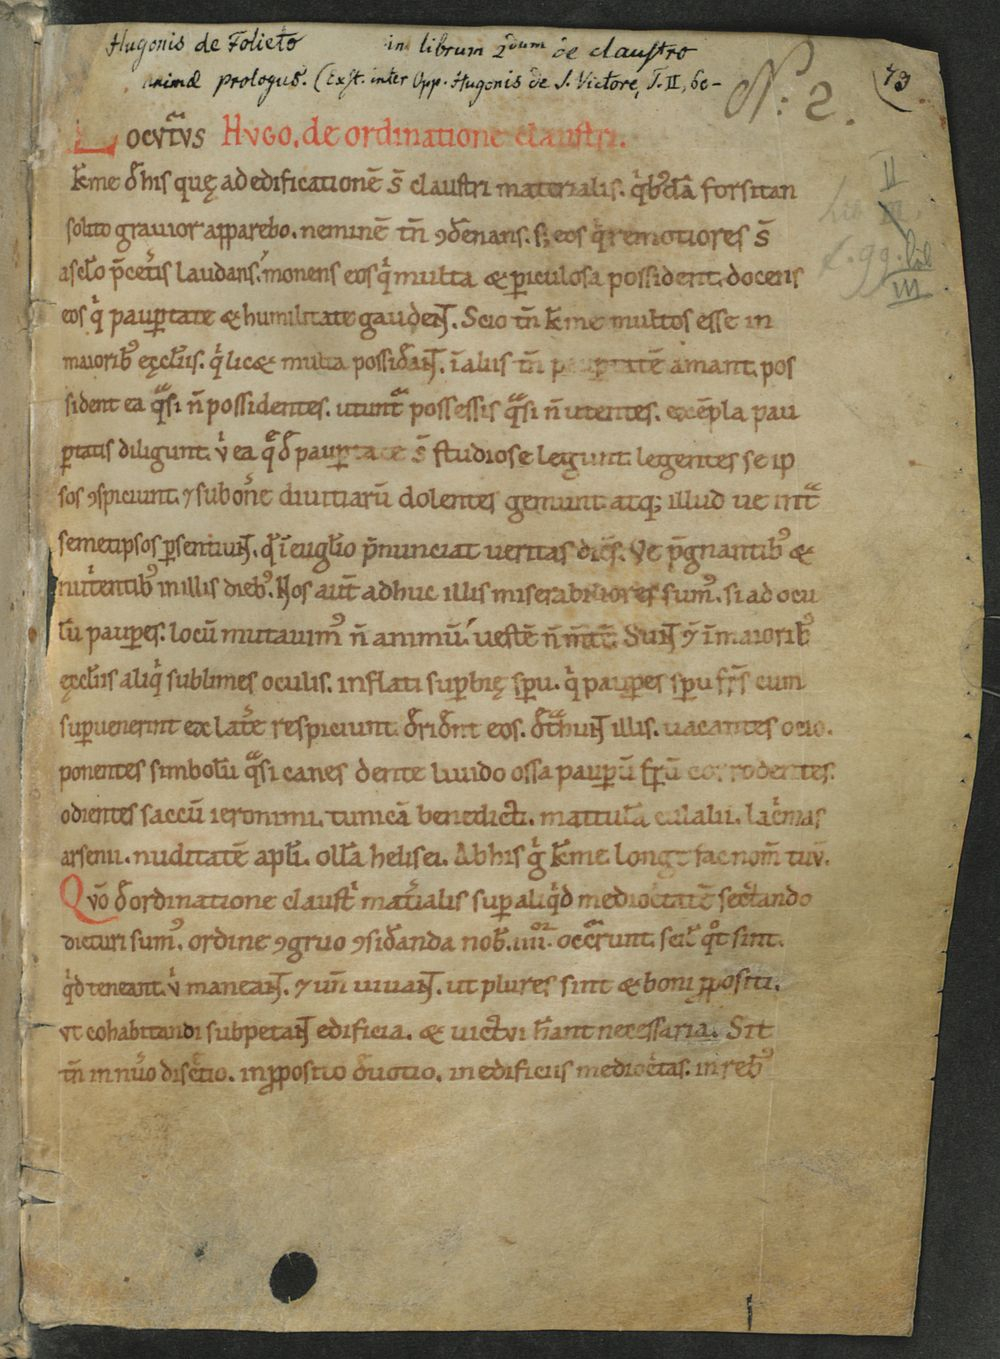 Hugonis de Folieto in librum 2dum de claustro
animæ prologus. (Exst. inter Opp. Hugonis de S. Victore, T. II, 60-
N: 2.
73
II
III
Locutus Hugo. de ordinatione claustri.
kme de his quę ad edificationē s̄ claustri materialis. qͥbꝰdā forsitan
solito gravior apparebo. neminē tn̄ ꝯdēnans. sꝫ eos qͥ remotiores s̄
a sclo p̄ cetis laudans. monens eos qͥ multa & piculosa possident. docens
eos qͥ paupertate & humilitate gaudent. Scio tn̄ kme multos esse in
maioribꝰ ęccliis. qͥ licet multa possideant. in aliis tn̄ paupertatē amant. pos
sident ea quasi n̄ possidentes. utuntur possessis quasi n̄ utentes. exēpla pau
ptatis diligunt. ea que de paupertate s̄ studiose legunt. legentes se ip
sos ꝯspiciunt. & sub onere divitiarū dolentes gemunt. atqꝫ illud ve intra
semetipsos psentiunt. qd ī euglio p̄nunciat veritas dicens. Ve p̄gnantibꝰ &
nutrientibꝰ in illis diebꝰ. Nos aut̄ adhuc illis miserabiliores sumꝰ. si ad ocu
lū pauperes. locū mutavimꝰ n̄ animū. vestē n̄ m̄tē. Sunt & ī maioribꝰ
ęccliis aliqͥ sublimes oculis. inflati superbię spu. qͥ pauperes spu frs cum
supervenerint ex latere respiciunt. derident eos. detrahunt illis. vacantes ocio.
ponentes simbolū quasi canes dente livido ossa pauperū frū corrodentes.
odientes saccū ieronimi. tunicā benedicti. mattulā eulalii. lacrimas
arsenii. nuditatē apli. ollā helisei. Ab his g̊ kme longe fac nom̄ tuū.
Qvō de ordinatione claustri materialis super aliqͥd mediocritatē sectando
dicturi sumꝰ. ordine ꝯgruo ꝯsideranda nob. iiiior. occurrunt. scil. qͦt sint.
qͥd teneant. ubi maneant. & un̄ vivant. ut plures sint & boni ꝓpositi.
ut cohabitandi subpetant edificia. & victui fiant necessaria. Sit
tn̄ in nūo discretio. in ꝓposito devotio. in edificiis mediocritas. in rebꝰ